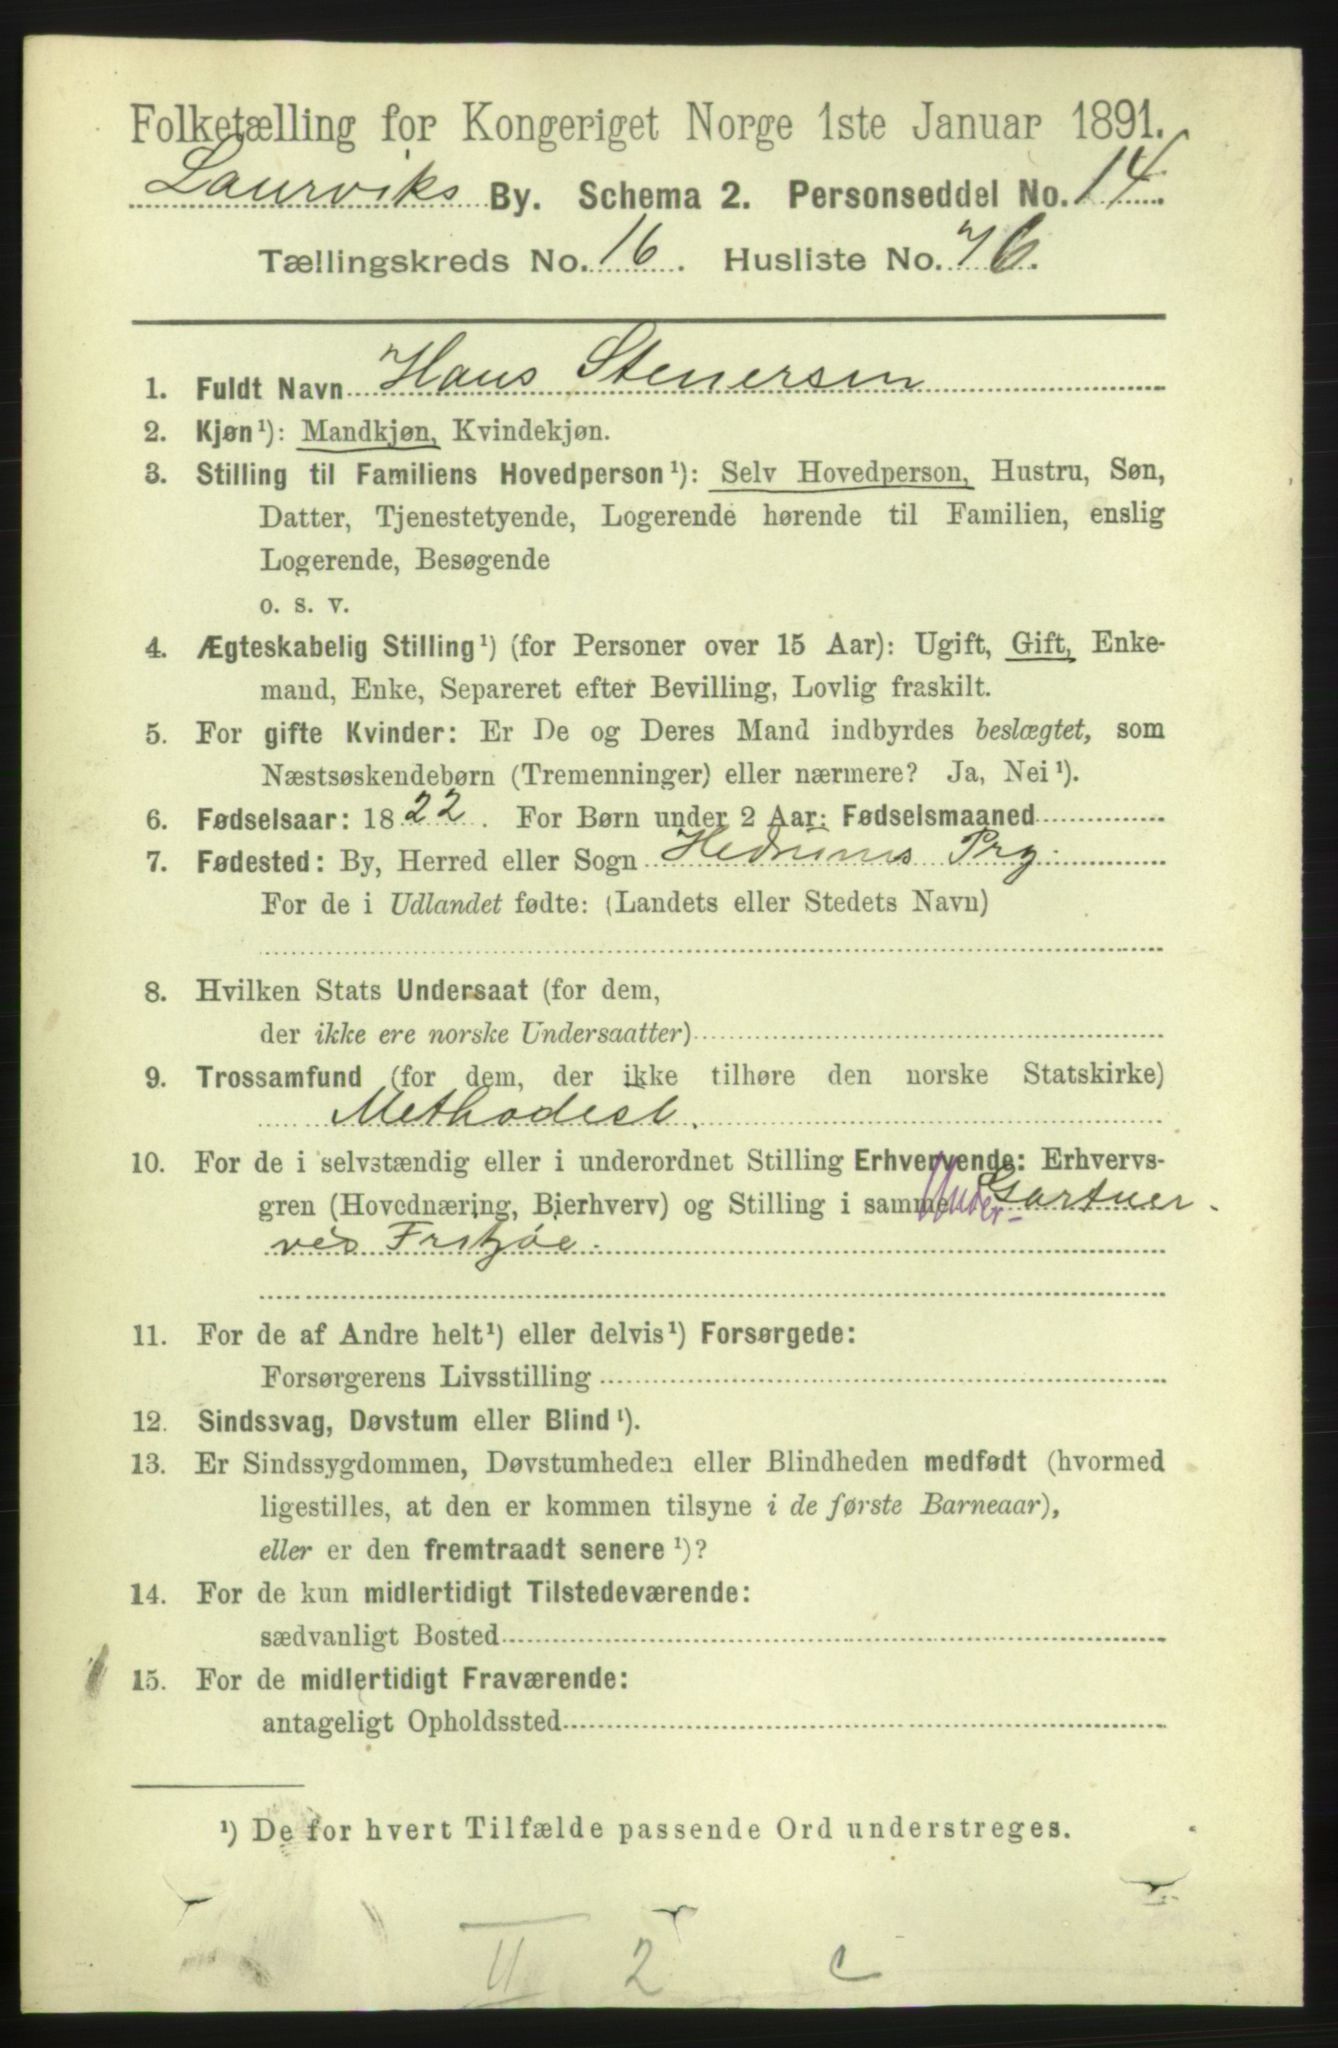 Folketælling for Kongeriget Norge 1ste Januar 1891.
Laurviks By. Schema 2. Personseddel No. 14
Tællingskreds No. 16. Husliste No. 76.
1. Fuldt Navn Hans Stenersen
2. Kjøn¹): Mandkjøn, Kvindekjøn.
3. Stilling til Familiens Hovedperson¹): Selv Hovedperson, Hustru, Søn,
Datter, Tjenestetyende, Logerende hørende til Familien, enslig
Logerende, Besøgende
o. s. v.
4. Ægteskabelig Stilling¹) (for Personer over 15 Aar): Ugift, Gift, Enke-
mand, Enke, Separeret efter Bevilling, Lovlig fraskilt.
5. For gifte Kvinder: Er De og Deres Mand indbyrdes beslægtet, som
Næstsøskendebørn (Tremenninger) eller nærmere? Ja, Nei¹).
6. Fødselsaar: 1822. For Børn under 2 Aar: Fødselsmaaned
7. Fødested: By, Herred eller Sogn Hedrums Prg.
For de i Udlandet fødte: (Landets eller Stedets Navn)
8. Hvilken Stats Undersaat (for dem,
der ikke ere norske Undersaatter)
9. Trossamfund (for dem, der ikke tilhøre den norske Statskirke)
Methodist.
10. For de i selvstændig eller i underordnet Stilling Erhvervende: Erhvervs-
gren (Hovednæring, Bierhverv) og Stilling i samme Under- Gartner
ved Fritzøe.
11. For de af Andre helt¹) eller delvis¹) Forsørgede:
Forsørgerens Livsstilling
12. Sindssvag, Døvstum eller Blind¹).
13. Er Sindssygdommen, Døvstumheden eller Blindheden medfødt (hvormed
ligestilles, at den er kommen tilsyne i de første Barneaar),
eller er den fremtraadt senere¹)?
14. For de kun midlertidigt Tilstedeværende:
sædvanligt Bosted
15. For de midlertidigt Fraværende:
antageligt Opholdssted
¹) De for hvert Tilfælde passende Ord understreges.
II 2 c